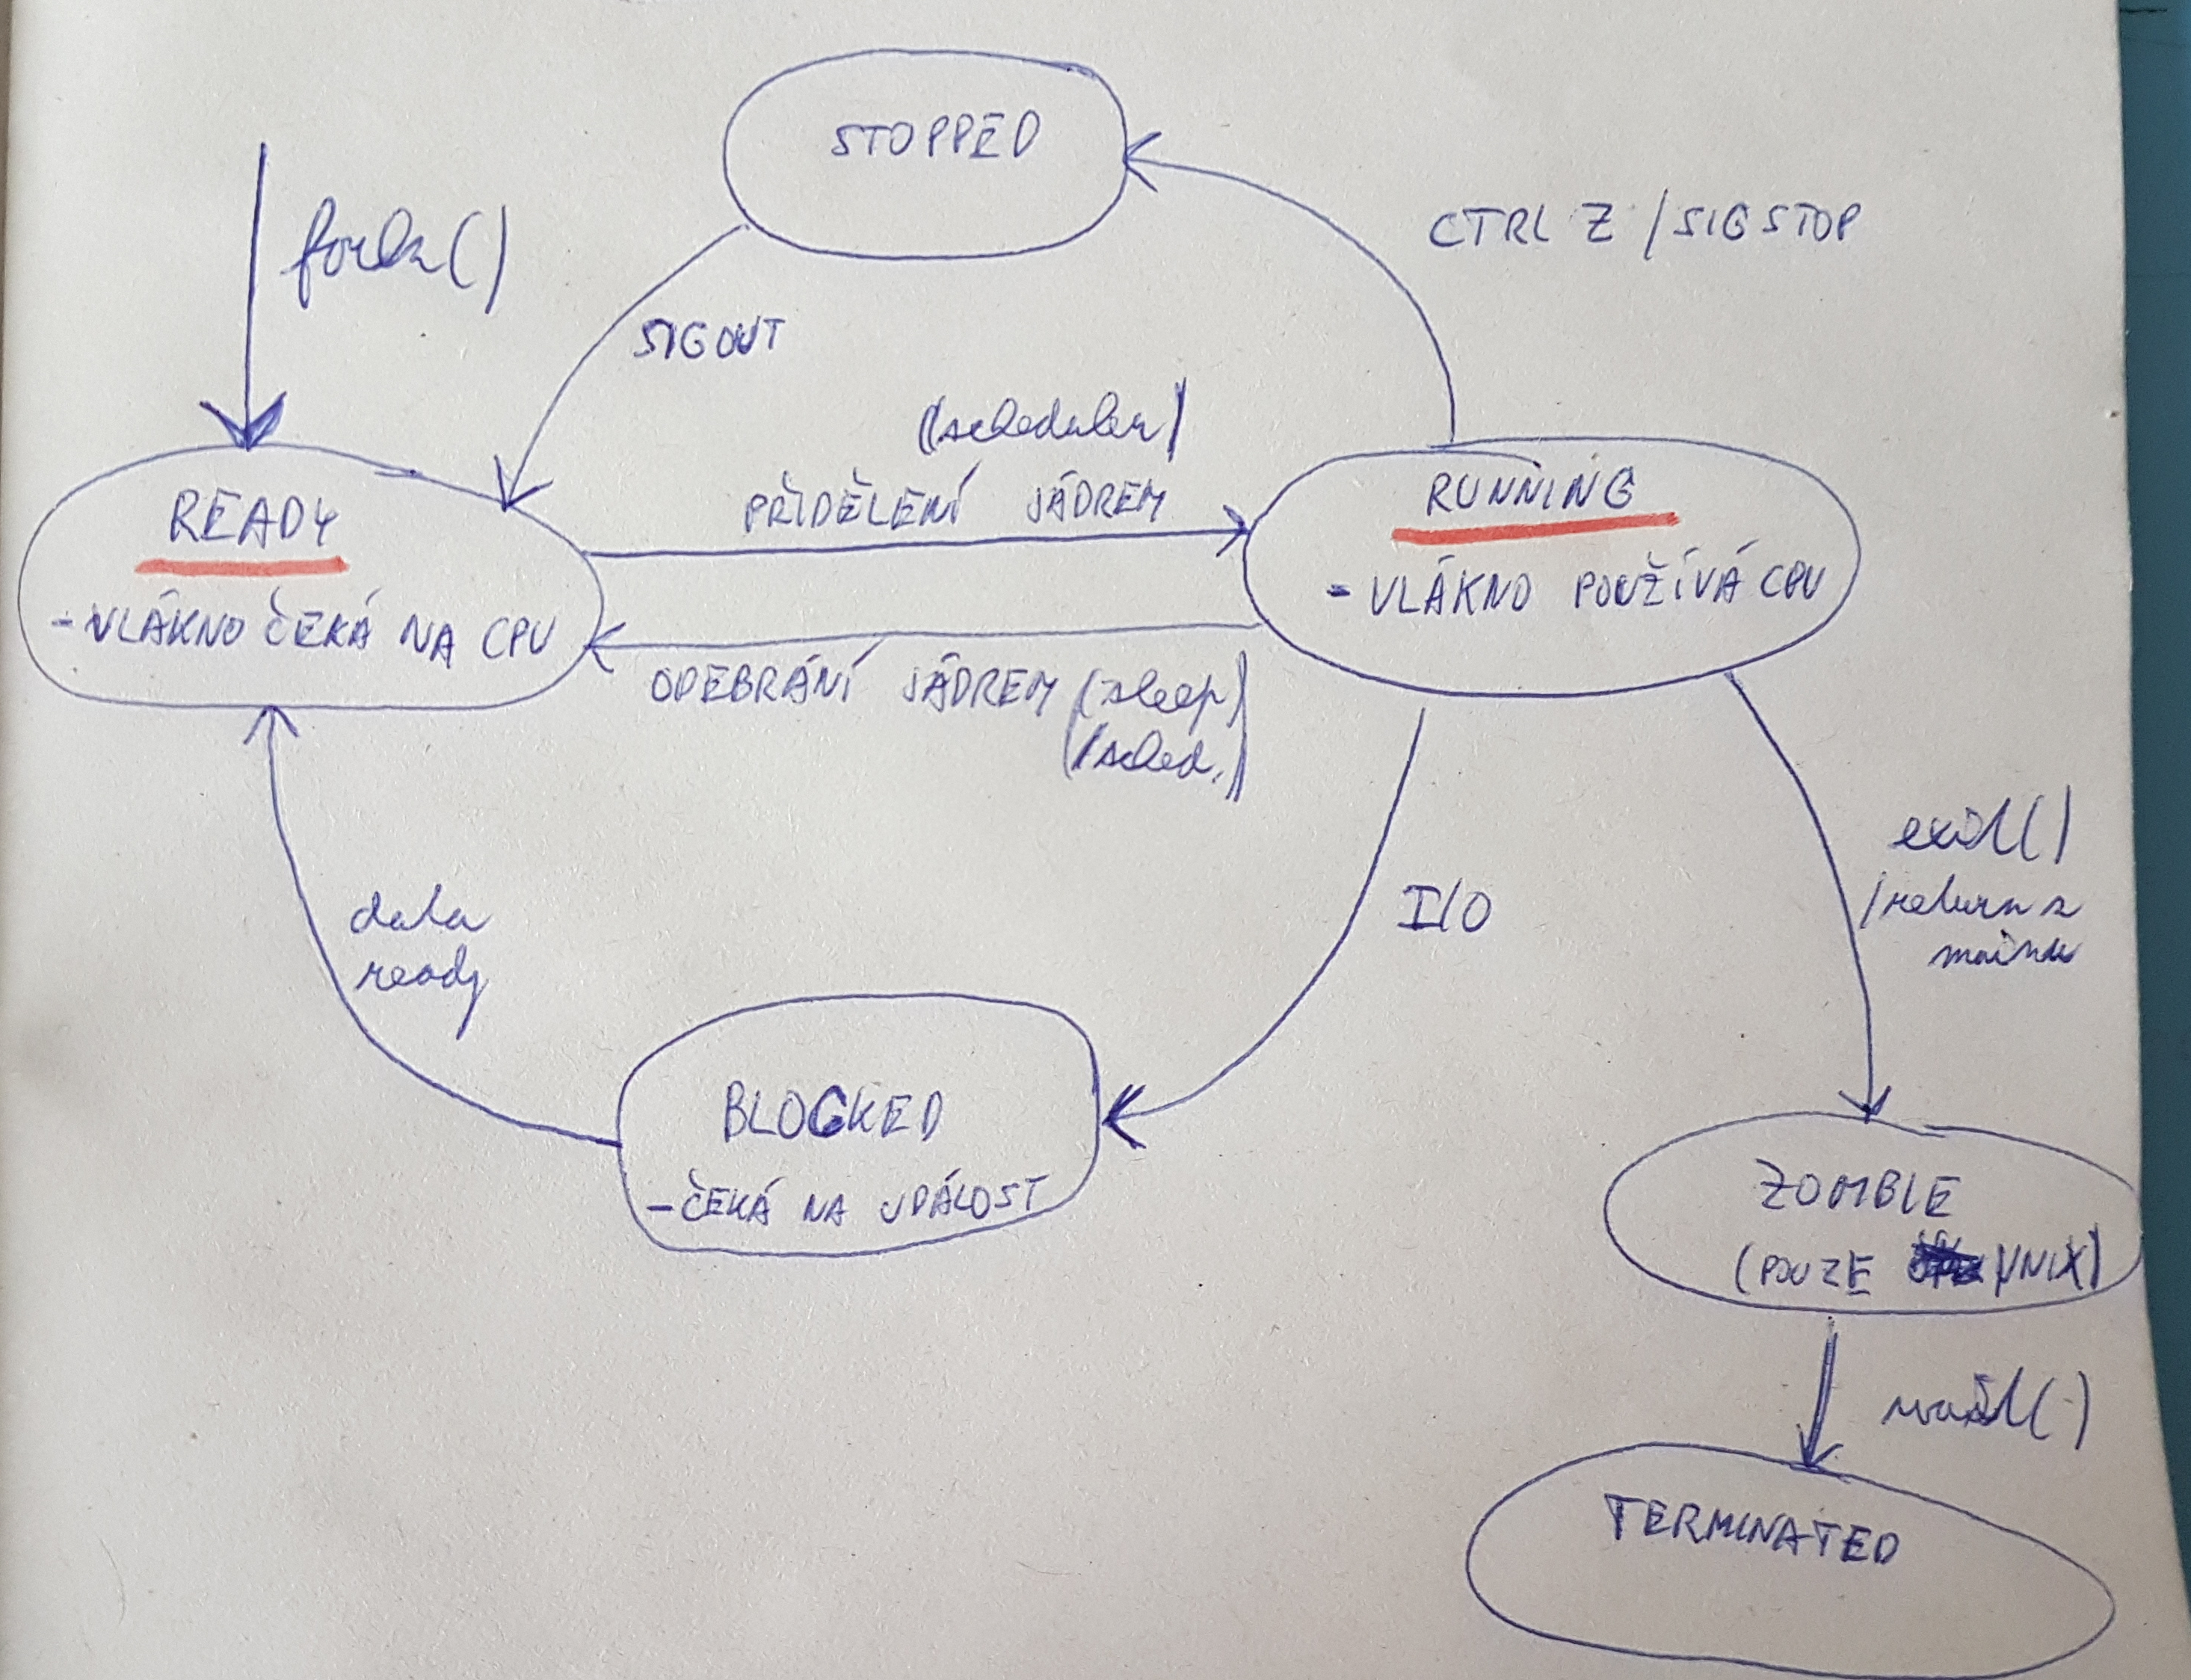 STOPPED
fork()
CTRL Z / SIGSTOP
SIGOUT
(scheduler)
PŘIDĚLENÍ JÁDREM
READY
- VLÁKNO ČEKÁ NA CPU
RUNNING
- VLÁKNO POUŽÍVÁ CPU
ODEBRÁNÍ JÁDREM (sleep)
(/sched.)
data
ready
I/O
exit()
/return z
mainu
BLOCKED
- ČEKÁ NA UDÁLOST
ZOMBIE
(POUZE UNIX)
wait()
TERMINATED